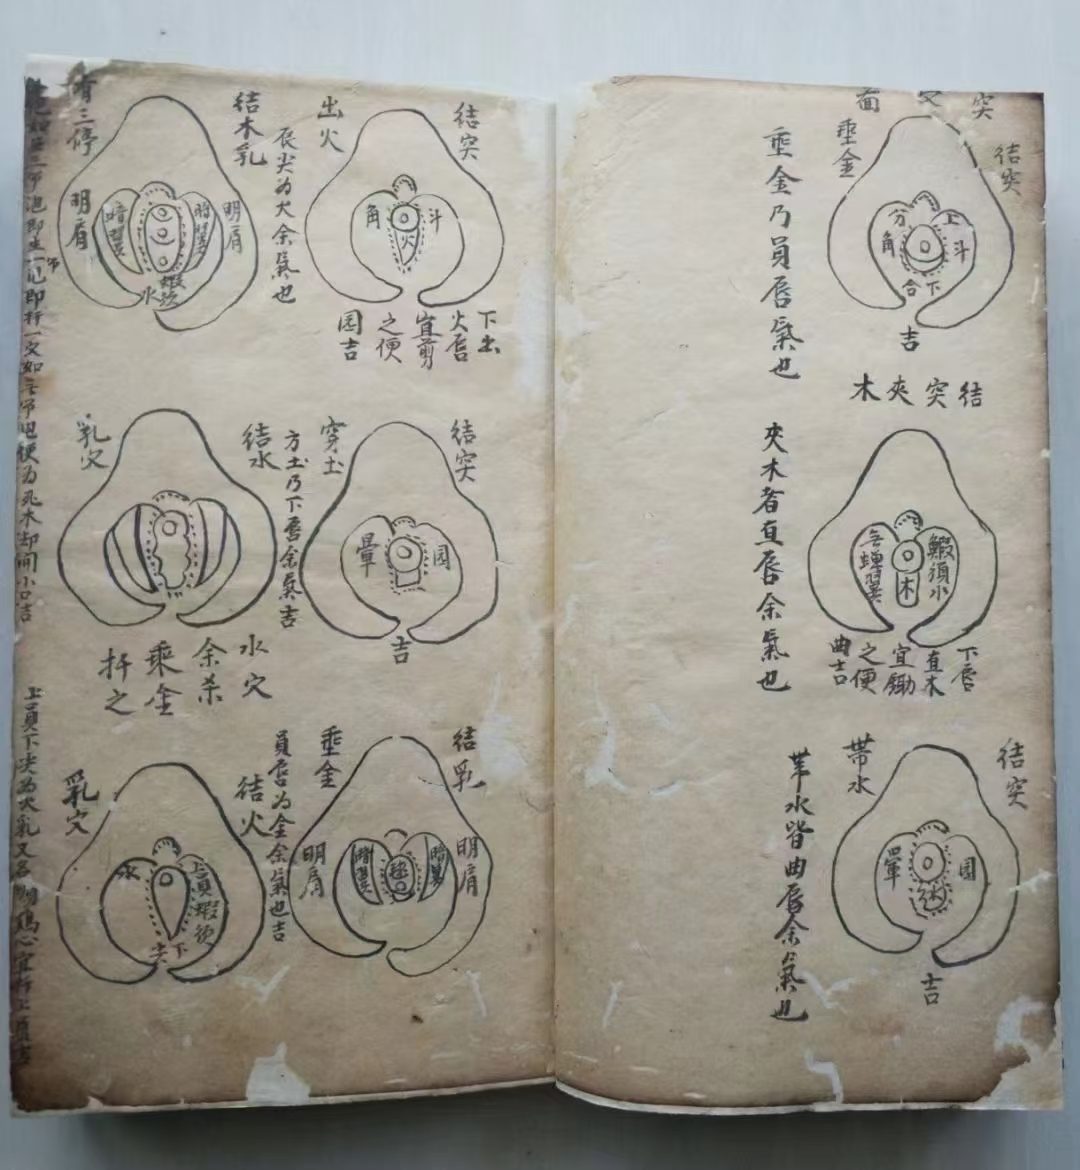 突
文
面
結突
垂金
分
上
角
斗
合下
吉
垂金乃員唇氣也
結突夾木
夾木者直唇余氣也
無蟬翼
鰕須水
木
下唇
直木
宜鋤
之便
曲吉
結突
帶水
暈
水
园
吉
苐水皆曲唇余氣也
結突
出火
角
斗
火
下出
火唇
宜剪
之便
园吉
辰尖為火余氣也
結木乳
有三停
明肩
暗翼
暗翼
明肩
水
結突
穿土
暈
园
吉
方土乃下唇余氣吉
結水
乳穴
水穴
余杀
乘金
扦之
結乳
垂金
明肩
暗翼
暗翼
明肩
員唇為金余氣也吉
結火
乳穴
水
上員
下
尖
上員下尖為火乳又名
宜扦上員吉